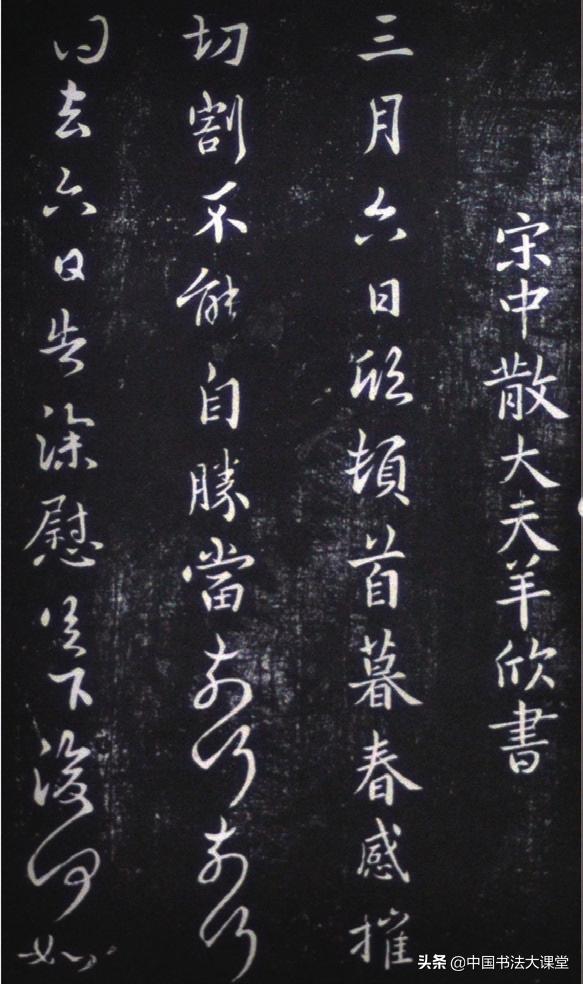 宋中散大夫羊欣書
三月六日欣頓首暮春感摧
切割不能自勝當奈何奈何
去六日告深慰足下復何如
头条 @中国书法大课堂